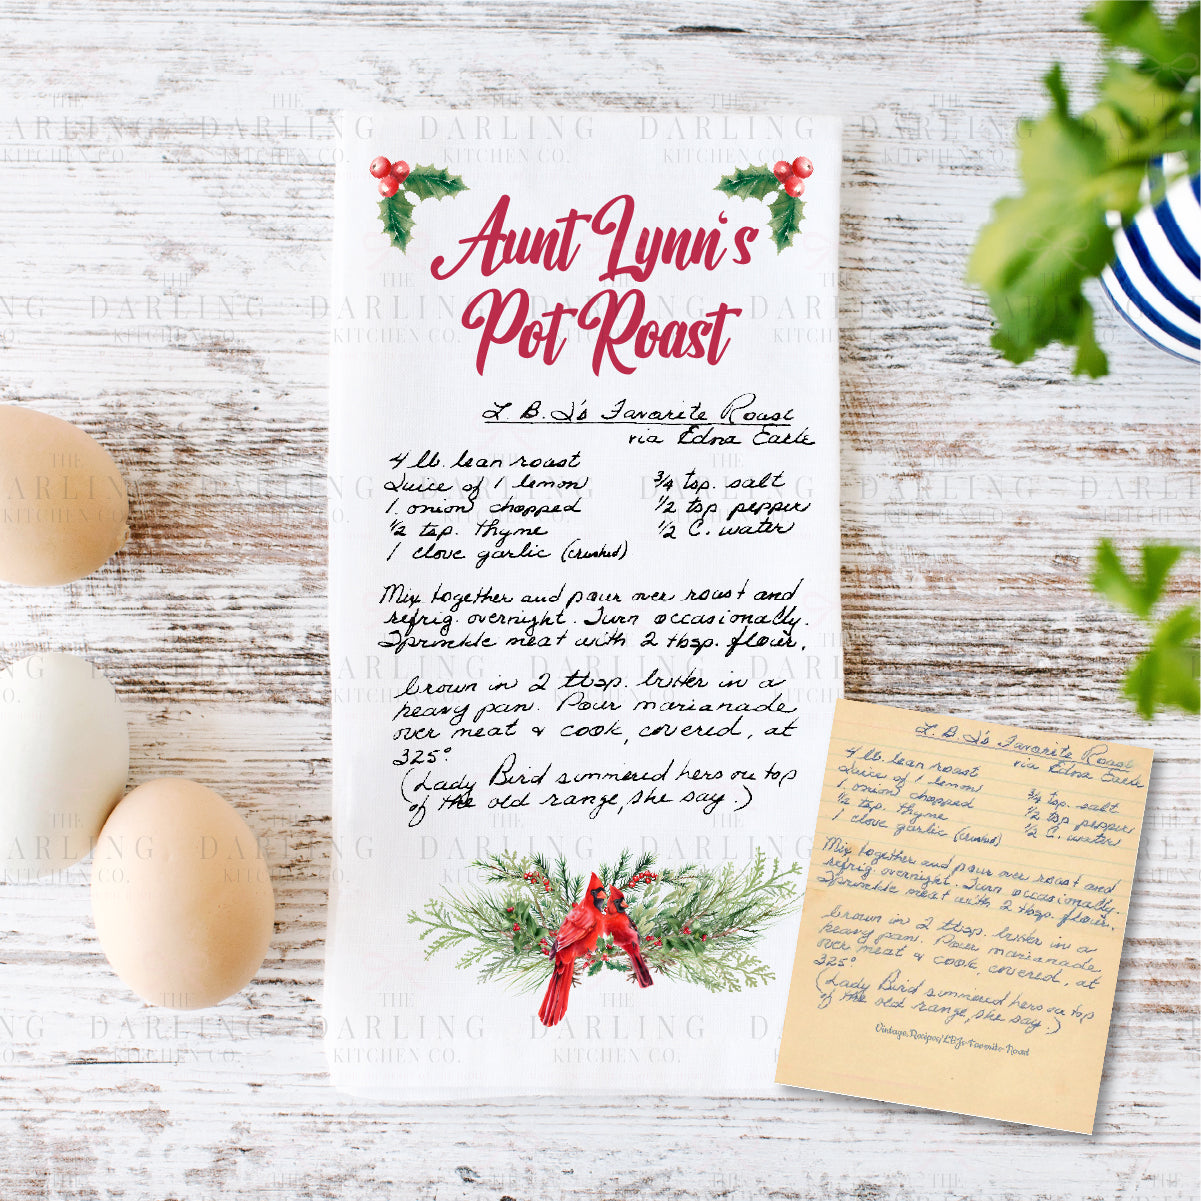 Aunt Lynn's
Pot Roast
L. B. J's Favorite Roast
via Edna Earle
4 lb. lean roast
Juice of 1 lemon
1. onion chopped
1/2 tsp. thyme
1 clove garlic (crushed)
3/4 tsp. salt
1/2 tsp pepper
1/2 C. water
Mix together and pour over roast and
refrig. overnight. Turn occasionally.
Sprinkle meat with 2 tbsp. flour,
brown in 2 tbsp. butter in a
heavy pan. Pour marianade
over meat & cook, covered, at
325°
(Lady Bird simmered hers on top
of the old range, she say.)
L. B. J's Favorite Roast
via Edna Earle
4 lb. lean roast
Juice of 1 lemon
1. onion chopped
1/2 tsp. thyme
1 clove garlic (crushed)
3/4 tsp. salt
1/2 tsp pepper
1/2 C. water
Mix together and pour over roast and
refrig. overnight. Turn occasionally.
Sprinkle meat with 2 tbsp. flour,
brown in 2 tbsp. butter in a
heavy pan. Pour marianade
over meat & cook, covered, at
325°
(Lady Bird simmered hers on top
of the old range, she say.)
Vintage.Recipes/LBJs-Favorite-Roast
THE
DARLING
KITCHEN CO.